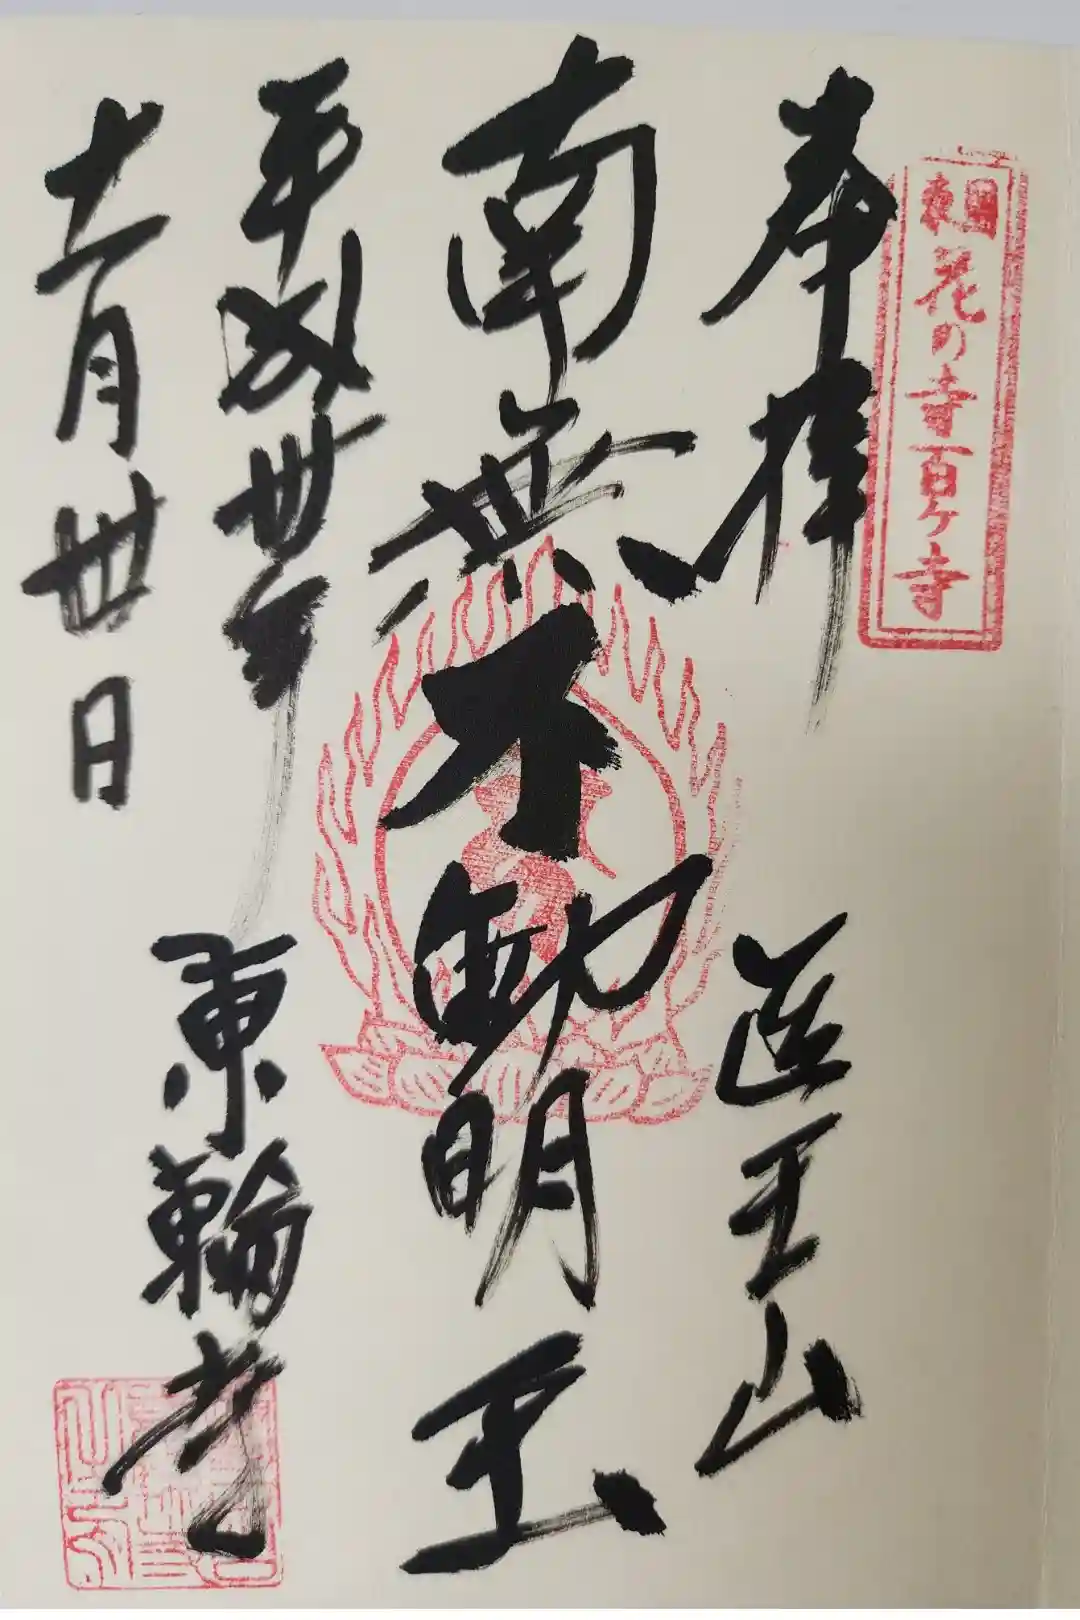 東国花の寺百ケ寺
奉拝
医王山
南無不動明王
平成丗年
東輪寺
十一月丗日